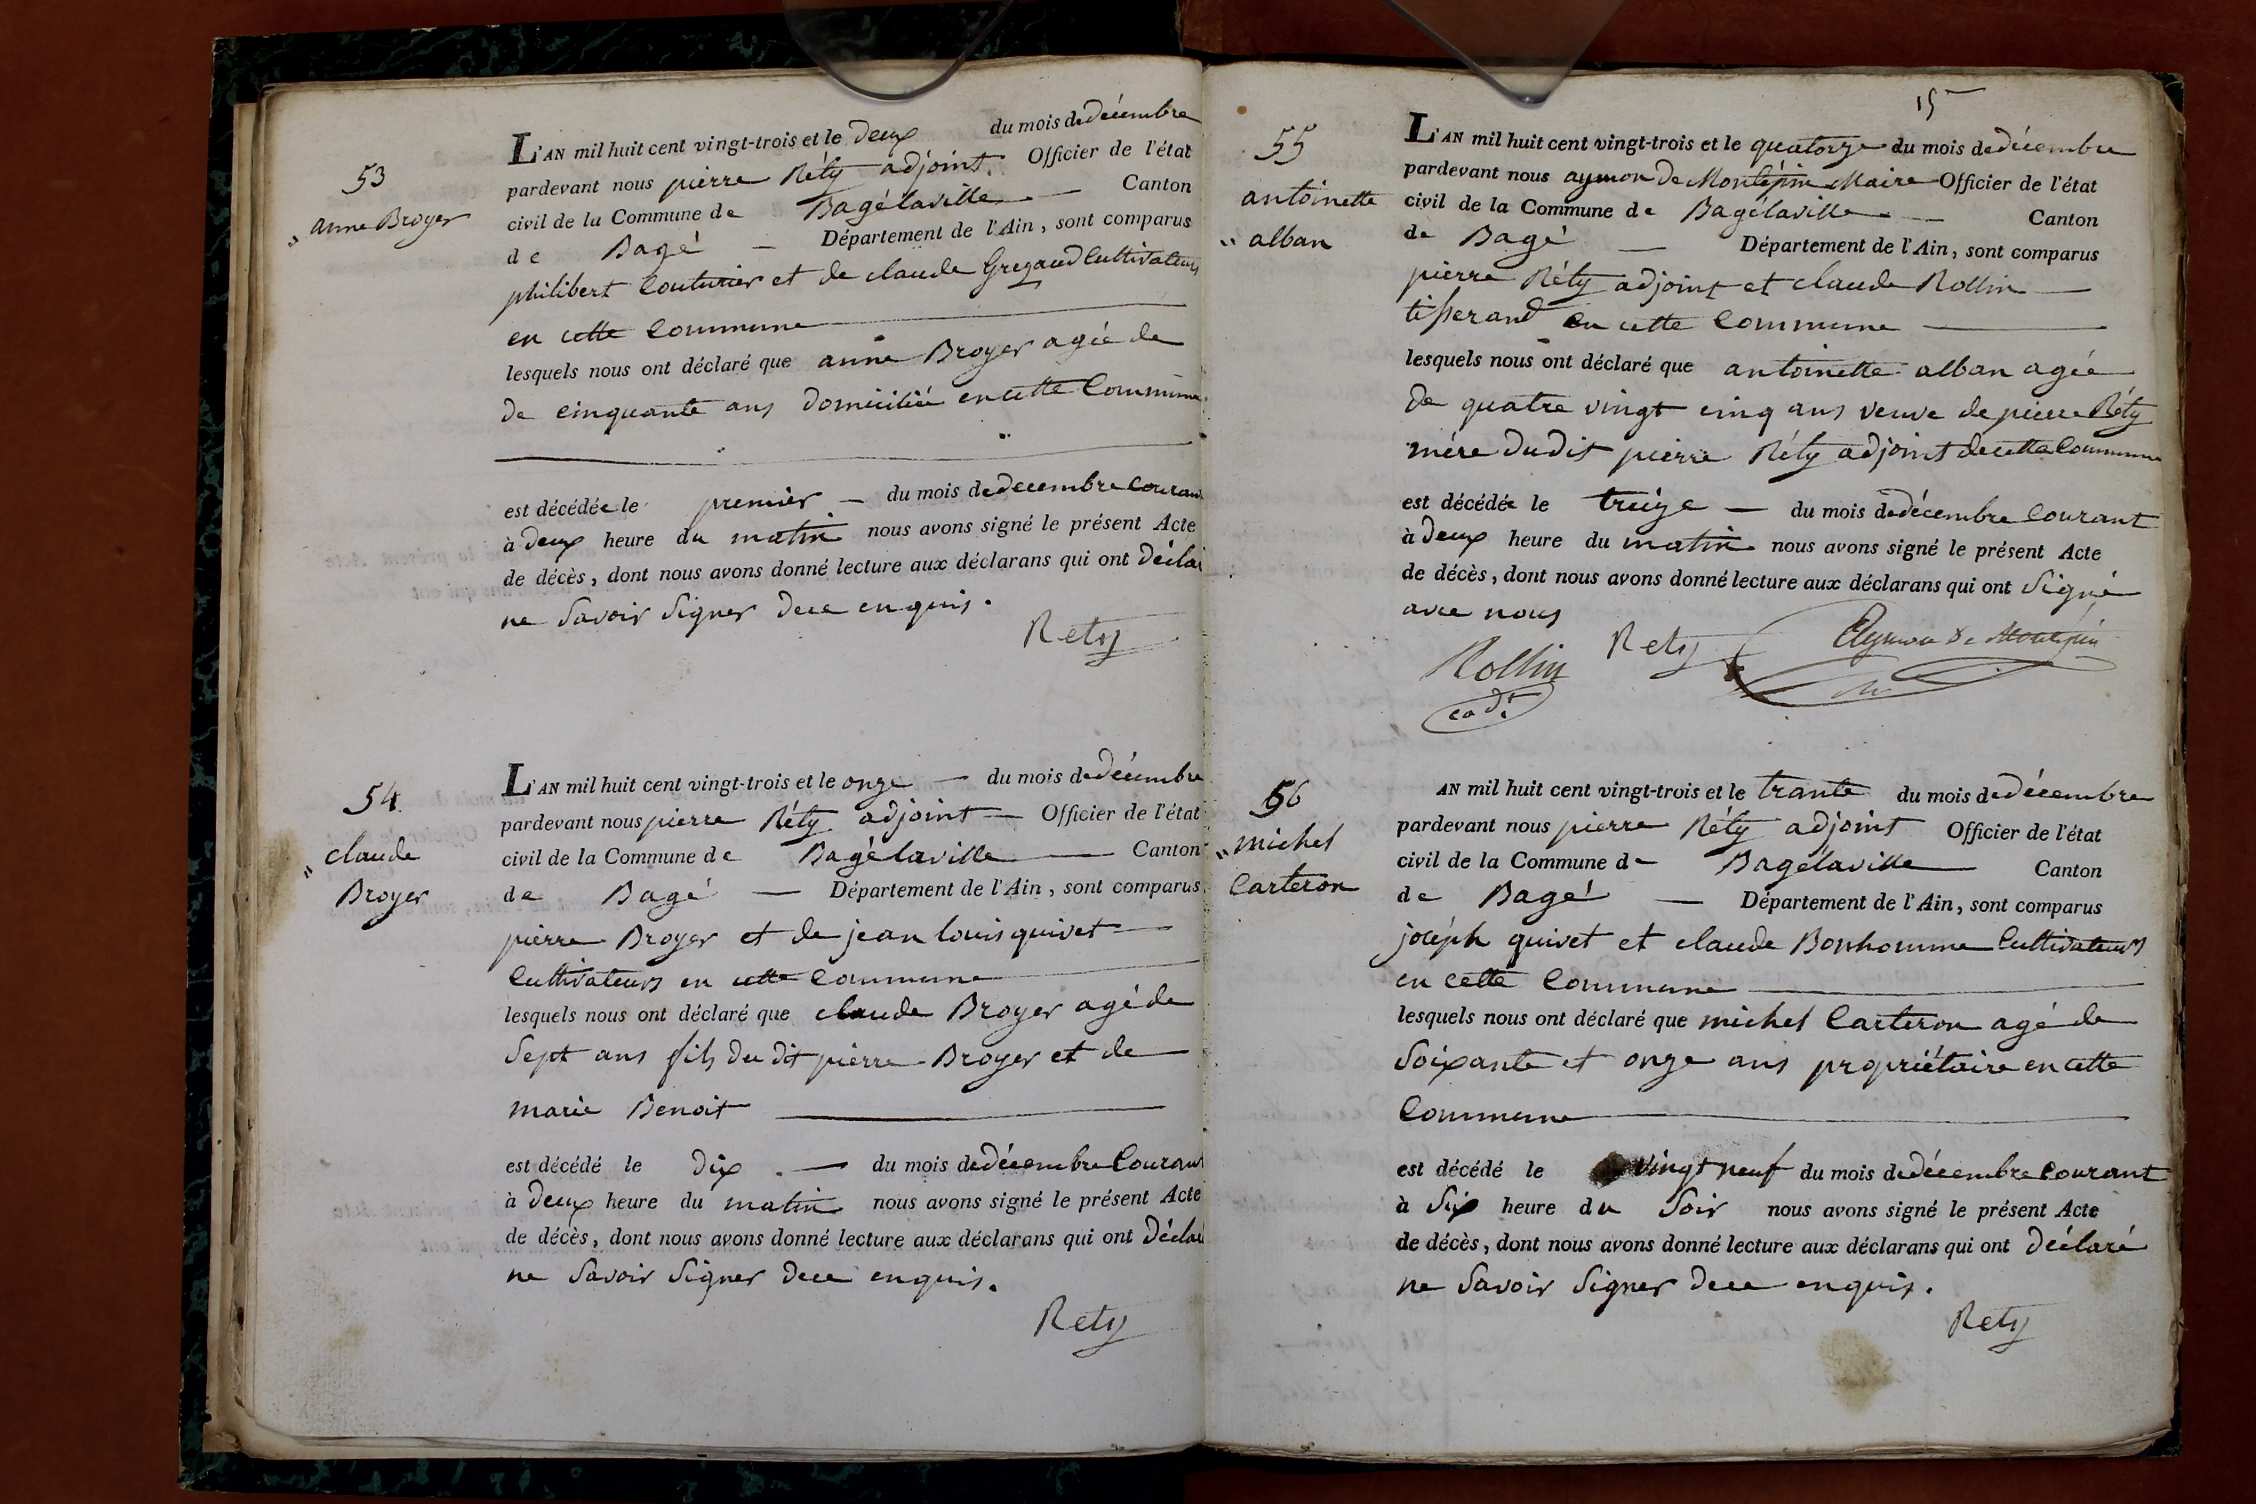 53
anne Broyer
L'AN mil huit cent vingt-trois et le deux du mois de décembre
pardevant nous pierre Réty adjoint Officier de l'état
civil de la Commune de Bagélaville Canton
de Bagé Département de l'Ain, sont comparus
philibert Couturier et de claude Cultivateurs
en cette Commune
lesquels nous ont déclaré que anne Broyer agée de
de cinquante ans domiciliée en cette Commune
est décédée le premier du mois de decembre Courant
à deux heure du matin nous avons signé le présent Acte
de décès, dont nous avons donné lecture aux déclarans qui ont déclaré
ne Savoir Signer dece enquis.
Rety
54
claude
Broyer
L'AN mil huit cent vingt-trois et le onze du mois de décembre
pardevant nous pierre Réty adjoint Officier de l'état
civil de la Commune de Bagélaville Canton
de Bagé Département de l'Ain, sont comparus
pierre Broyer et de jean louis quivet
Cultivateurs en cette Commune
lesquels nous ont déclaré que claude Broyer agé de
Sept ans fils du dit pierre Broyer et de
marie Benoit
est décédé le dix du mois de décembre Courant
à deux heure du matin nous avons signé le présent Acte
de décès, dont nous avons donné lecture aux déclarans qui ont déclaré
ne Savoir Signer dece enquis.
Rety
15
55
antoinette
alban
L'AN mil huit cent vingt-trois et le quatorze du mois de décembre
pardevant nous aymon de Montépin Maire Officier de l'état
civil de la Commune de Bagélaville Canton
de Bagé Département de l'Ain, sont comparus
pierre Réty adjoint et claude Rollin
tisserand en cette Commune
lesquels nous ont déclaré que antoinette alban agée
de quatre vingt cinq ans veuve de pierre Réty
mére dudit pierre Réty adjoint de cette Commune
est décédée le treize du mois de décembre Courant
à deux heure du matin nous avons signé le présent Acte
de décès, dont nous avons donné lecture aux déclarans qui ont Signé
avec nous
Rollin Rety Aymon De Montépin
cadt
56
michel
Carteron
AN mil huit cent vingt-trois et le trante du mois de décembre
pardevant nous pierre Réty adjoint Officier de l'état
civil de la Commune de Bagélaville Canton
de Bagé Département de l'Ain, sont comparus
joséph quivet et claude Bonhomme Cultivateurs
en cette Commune
lesquels nous ont déclaré que michel Carteron agé de
Soixante et onze ans propriétaire en cette
Commune
est décédé le vingt neuf du mois de décembre Courant
à Six heure du Soir nous avons signé le présent Acte
de décès, dont nous avons donné lecture aux déclarans qui ont déclaré
ne Savoir Signer dece enquis.
Rety